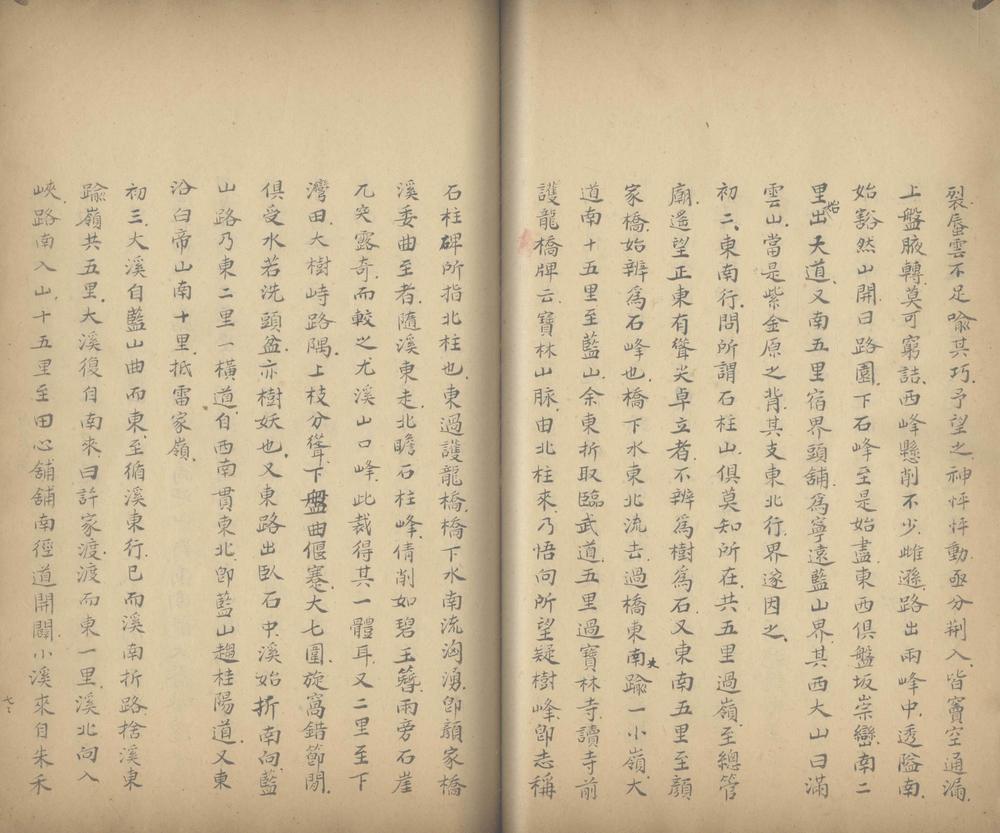 裂蜃雲不足喻其巧予望之神怦怦動亟分荆入皆竇空通漏
上盤腋轉莫可窮詰西峰懸削不少雌遜路出兩峰中透隘南
始豁然山開曰路園下石峰至是始盡東西俱盤坂崇巒南二
里出始天道又南五里宿界頭舖為寧遠藍山界其西大山曰滿
雲山當是紫金原之背其支東北行界遂因之
初二東南行問所謂石柱山俱莫知所在共五里過嶺至總管
廟遥望正東有聳尖卓立者不辨為樹為石又東南五里至顏
家橋始辨為石峰也橋下水東北流去過橋東南踰一小嶺大
道南十五里至藍山余東折取臨武道五里過寶林寺讀寺前
護龍橋牌云寶林山脉由北柱來乃悟向所望疑樹峰卽志稱
石柱碑所指北柱也東過護龍橋橋下水南流洶湧卽顏家橋
溪委曲至者隨溪東走北瞻石柱峰倩削如碧玉簪兩旁石崖
兀突露奇而較之尤溪山口峰此裁得其一體耳又二里至下
灣田大樹峙路隅上枝分聳下盤曲偃蹇大七圍旋窩錯節間
俱受水若洗頭盆亦樹妖也又東路出臥石中溪始折南向藍
山路乃東二里一橫道自西南貫東北卽藍山趨桂陽道又東
沿白帝山南十里抵雷家嶺
初三大溪自藍山曲而東至循溪東行已而溪南折路捨溪東
踰嶺共五里大溪復自南來曰許家渡渡而東一里溪北向入
峽路南入山十五里至田心舖舖南徑道開闢小溪來自朱禾